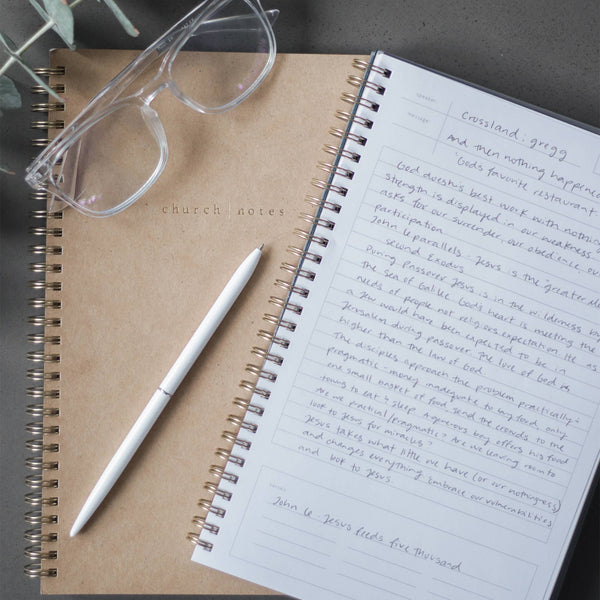 church | notes
speaker:
Crossland: gregg
message:
And then nothing happened
"Gods favorite restaurant
God does his best work with nothing
strength is displayed in our weakness.
asks for our surrender, our obedience, our
participation.
John 6 parallels - Jesus is the greater
second Exodus
During Passover Jesus is in the wilderness
the sea of Galilee. God's heart is meeting the
needs of people not religious expectation.
a Jew would have been expected to be in
Jerusalem during passover. The love of God is
higher than the law of God.
The disciples approach the problem practically;
pragmatic - money inadequate to buy food, only
one small basket of food, send the crowds to the
towns to eat & sleep. A generous boy offers his food
Are we practical/pragmatic? Are we leaving room to
look to Jesus for miracles?
Jesus takes what little we have (or our nothingness)
and changes everything. Embrace our vulnerabilities
and look to Jesus.
John 6 - Jesus feeds five thousand